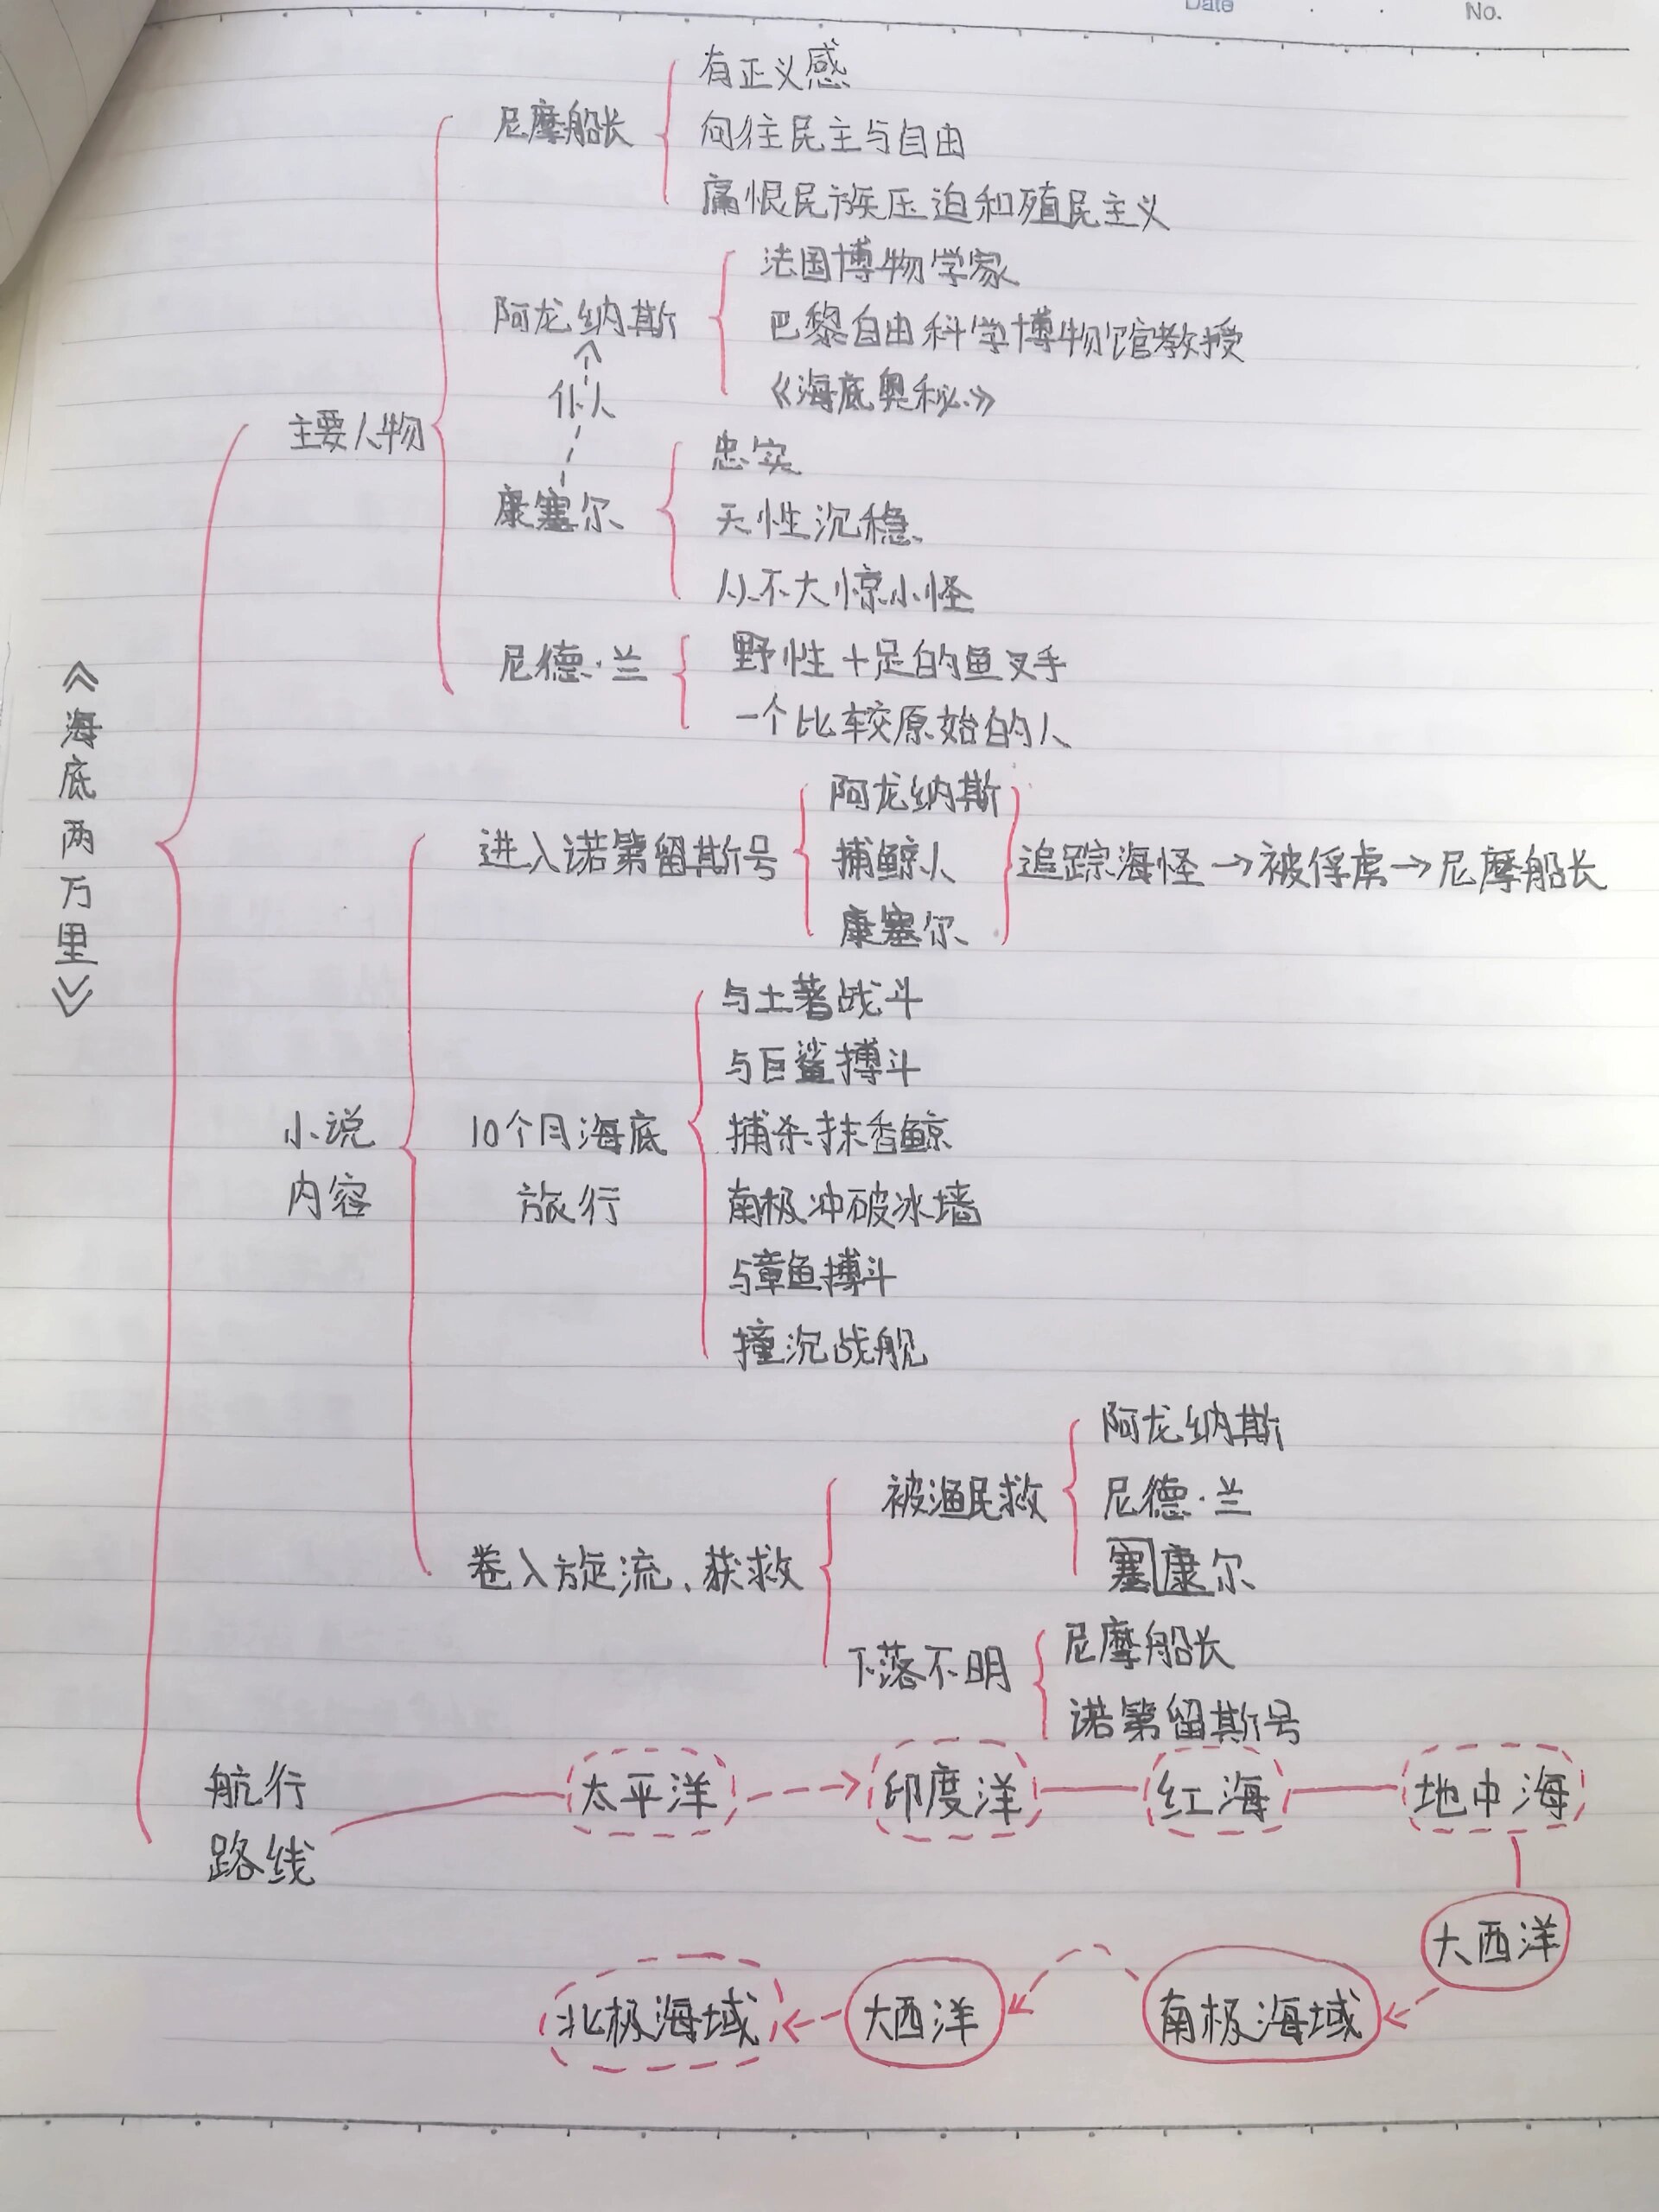 Date
No.
《海底两万里》
主要人物
尼摩船长
有正义感
向往民主与自由
痛恨民族压迫和殖民主义
阿龙纳斯
法国博物学家
巴黎自由科学博物馆教授
《海底奥秘》
仆人
康塞尔
忠实
天性沉稳
从不大惊小怪
尼德·兰
野性十足的鱼叉手
一个比较原始的人
小说
内容
进入诺第留斯号
阿龙纳斯
捕鲸人
康塞尔
追踪海怪→被俘虏→尼摩船长
10个月海底
旅行
与土著战斗
与巨鲨搏斗
捕杀抹香鲸
南极冲破冰墙
与章鱼搏斗
撞沉战舰
卷入旋流、获救
被渔民救
阿龙纳斯
尼德·兰
塞康尔
下落不明
尼摩船长
诺第留斯号
航行
路线
太平洋
印度洋
红海
地中海
大西洋
南极海域
大西洋
北极海域